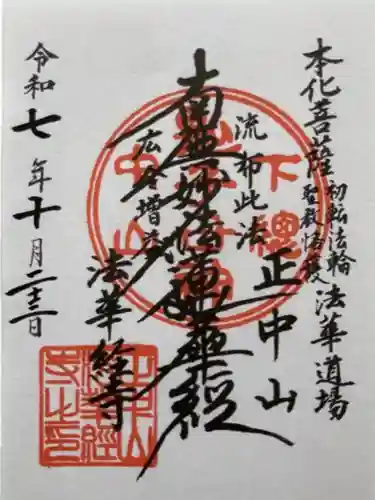 本化菩薩初転法輪法華道場
聖教格護
正中山
流布此法
南無妙法蓮華経
広令増益
法華経寺
令和七年十月二十二日
下總
中山